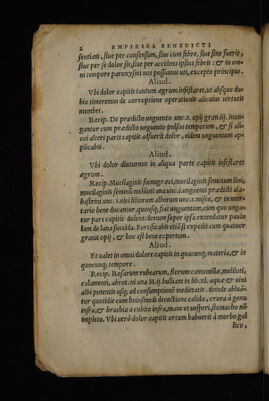 2 EMPIRICA BENEDICTI
sentiati, siue per consensum, siue cum febre, siue sine fuerit,
siue per se dolor sit, siue per accidens ipsius febris: & in om
ni tempore paroxysmi nos possumus uti, excepto principio.
Aliud.
Vbi dolor capitis tantum ægrum infestaret, ut absque du-
bio timeremus de corruptione operationis alicuius uirtutis
membri.
Recip. De prædicto unguento unc. opij gran. iij. inun-
gantur cum prædicto unguento pulsus temporum, & si ali-
cui alteri parti capitis adfuerit dolor, eidem unguentum ap-
plicabis.
Aliud.
Vbi dolor diuturnus in aliqua parte capitis infestaret
ægrum.
Recip. Mucilaginis fœnugræci, mucilaginis seminum lini,
mucilaginis seminis melioni ana unc. unguenti prædicti ala-
bastrini unc. i. olei liliorum alborum unc. & in mor-
tario bene ducantur, quousque, fiat unguentum, cum quo ungan
tur pars capitis dolens: demum super ipsa extendatur paulu
lum de lana succida. Fortificabis etiã si expedit cum quatuor
granis opij, & hoc est bene expertum.
Aliud.
Et ualet in omni dolore capitis in quacunque materia, & in
quocunque tempore.
Recip. Rosarum rubearum, florum camomillæ, meliloti,
calamenti, abrot. ni ana M. ij. bulliant in lib. xl. aquæ & uini
albi potentis usque ad consumptionē medietatis. deinde ablua-
tur quotidie cum huiusmodi decoctione calida, crura à genu
infra, & brachia a cubito infra, mane et uesperi, stomacho nõ
impleto. Vbi uerò dolor capitis ortum habuerit à morbo gal
lico,